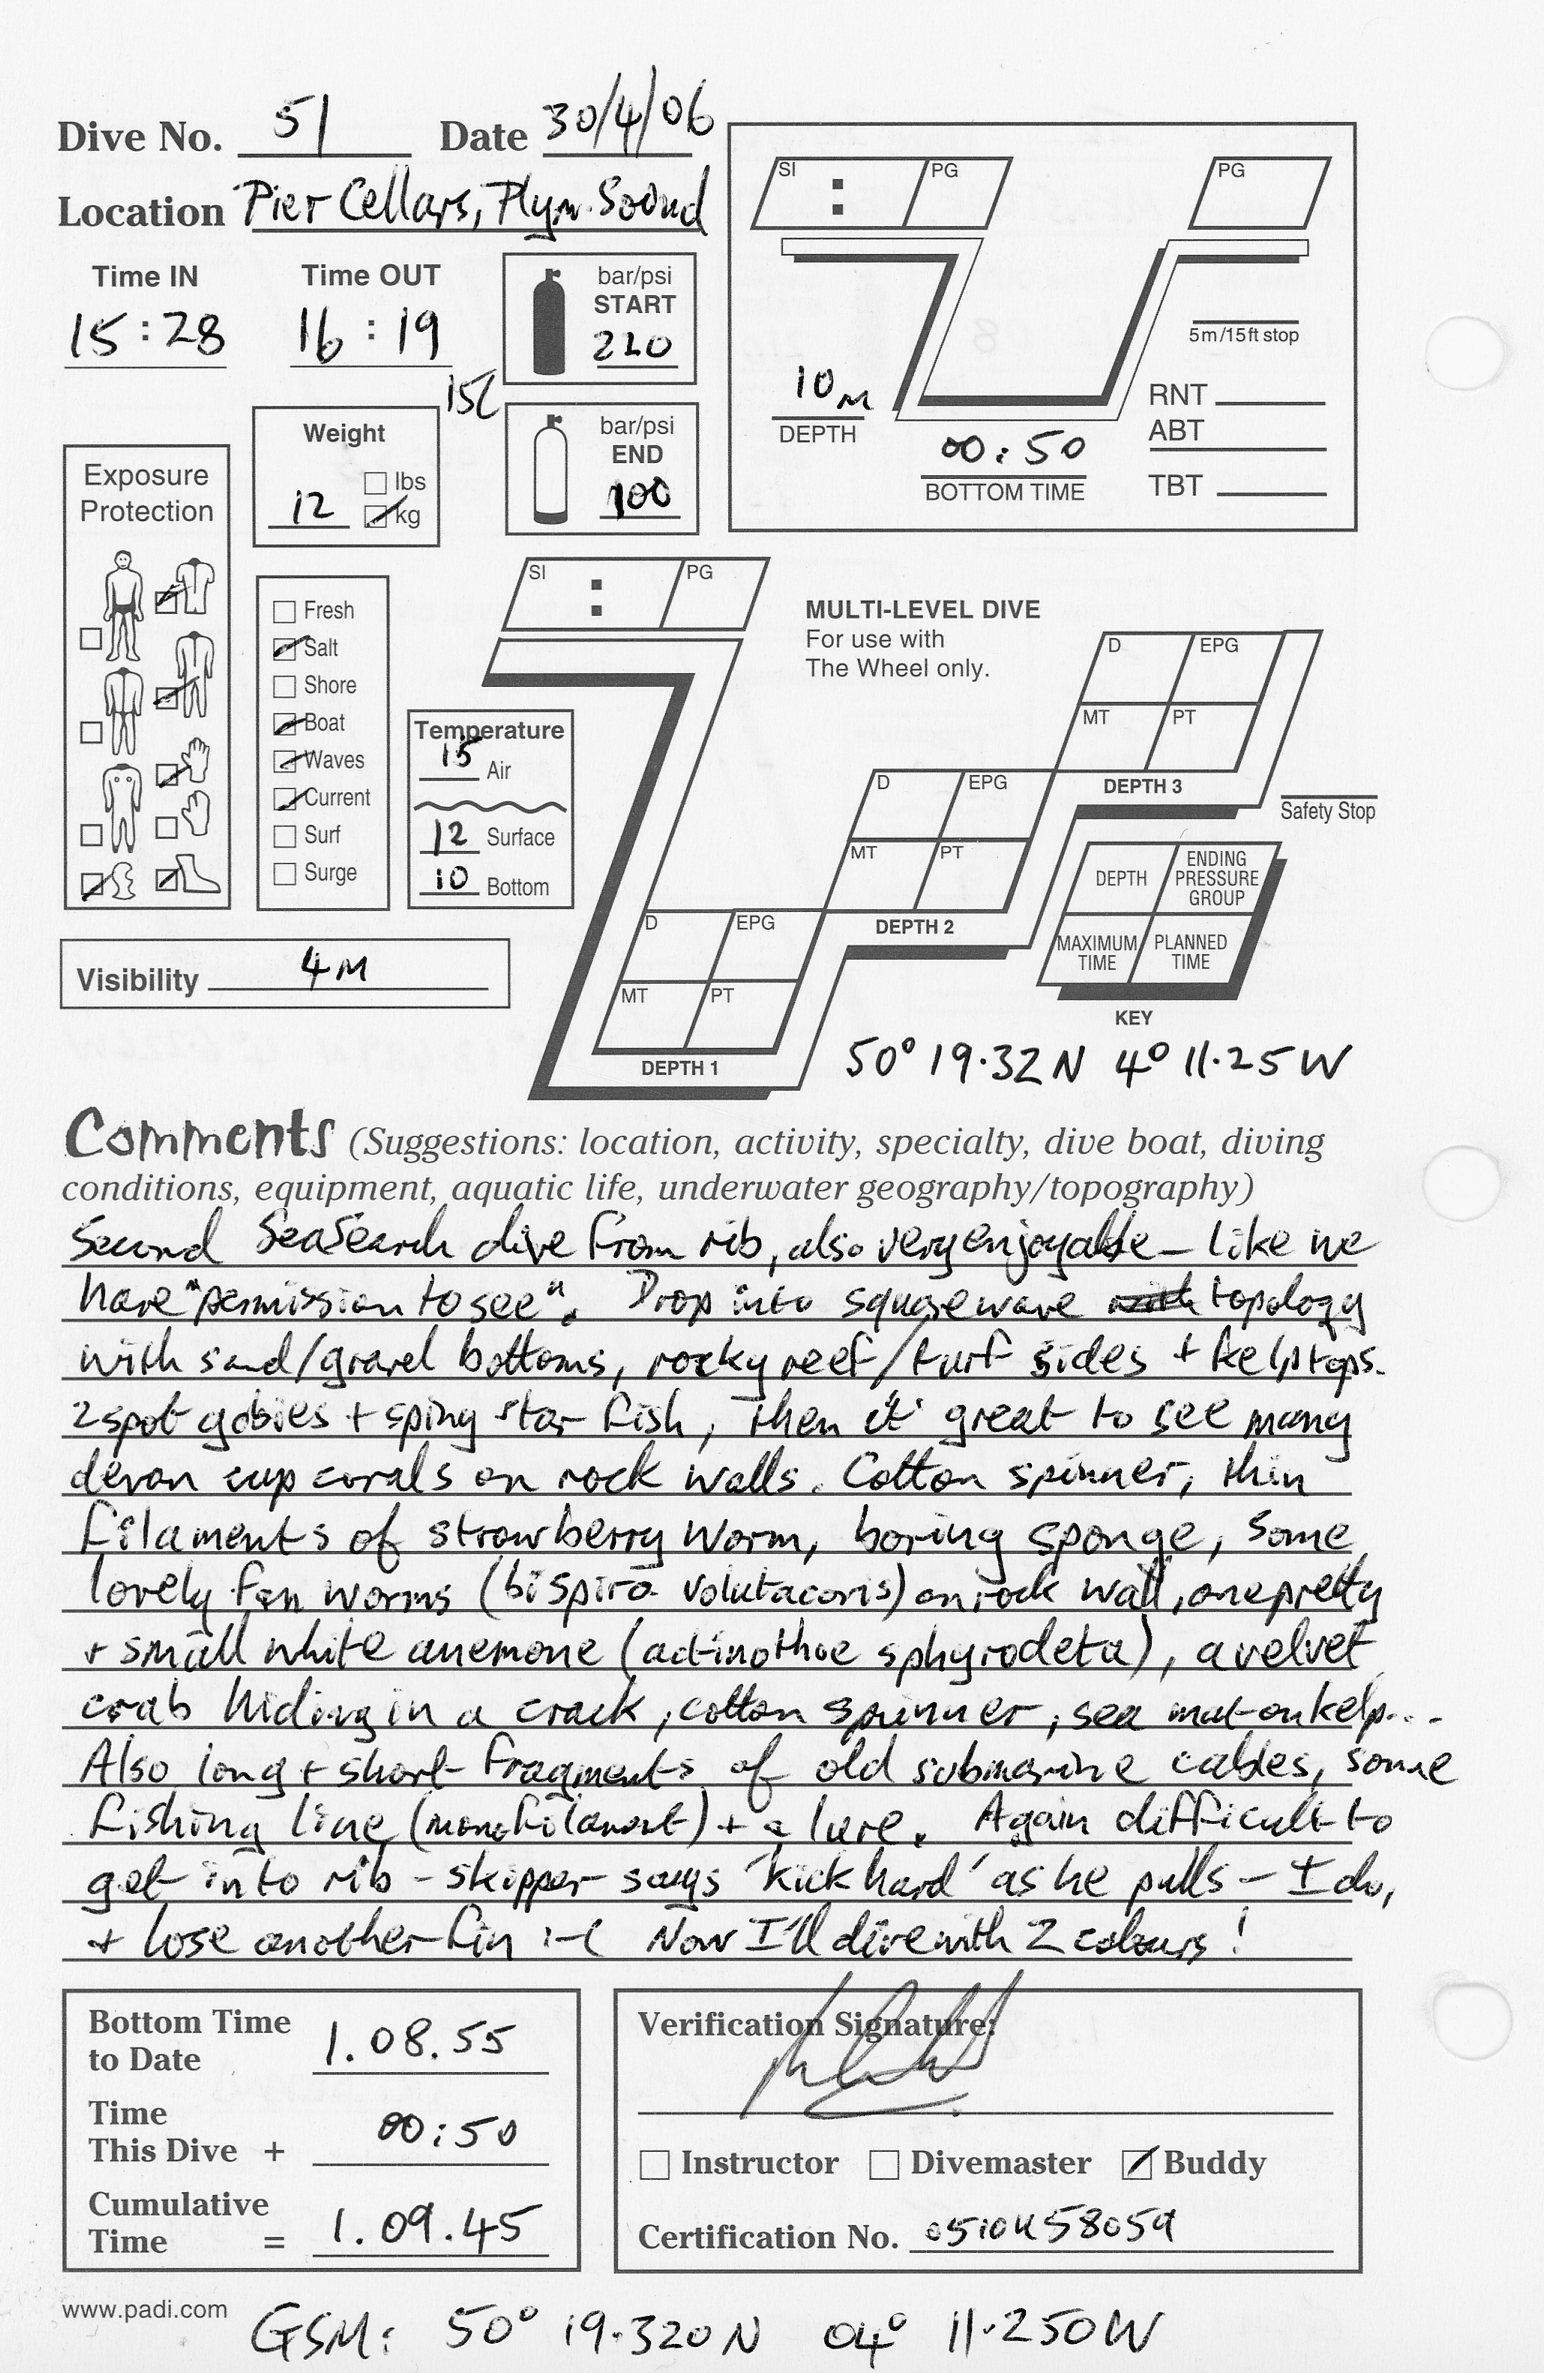 Dive No. 51 Date 30/4/06
Location Pier Cellars, Plym. Sound
Time IN Time OUT
15:28 16:19
bar/psi
START
220
15l
bar/psi
END
100
Weight
lbs
12 kg
Exposure
Protection
Fresh
Salt
Shore
Boat
Waves
Current
Surf
Surge
Temperature
15 Air
12 Surface
10 Bottom
Visibility 4M
SI : PG
PG
5m/15ft stop
10M
DEPTH
00:50
BOTTOM TIME
RNT
ABT
TBT
SI : PG
MULTI-LEVEL DIVE
For use with
The Wheel only.
D EPG
MT PT
DEPTH 3
Safety Stop
D EPG
MT PT
DEPTH 2
D EPG
MT PT
DEPTH 1
DEPTH ENDING PRESSURE GROUP
MAXIMUM TIME PLANNED TIME
KEY
50° 19.32N 4° 11.25W
Comments (Suggestions: location, activity, specialty, dive boat, diving
conditions, equipment, aquatic life, underwater geography/topography)
Second SeaSearch dive from rib, also very enjoyable – like we
have "permission to see". Drop into squarewave topology
with sand/gravel bottoms, rocky reef/turf sides + kelp tops.
2 spot gobies + spiny star fish, then it great to see many
devon cup corals on rock walls. Cotton spinner, thin
filaments of strawberry worm, boring sponge, some
lovely fan worms (bispira volutacoris) on rock wall, one pretty
+ small white anemone (actinothoe sphyrodeta), a velvet
crab hiding in a crack, cotton spinner, sea mat on kelp...
Also long + short fragments of old submarine cables, some
fishing line (monofilament) + a lure. Again difficult to
get into rib – skipper says 'kick hard' as he pulls – I do,
+ lose another fin :-( Now I'll dive with 2 colours!
Bottom Time
to Date 1.08.55
Time
This Dive + 00:50
Cumulative
Time = 1.09.45
Verification Signature:
Instructor Divemaster Buddy
Certification No. 0510458059
www.padi.com
GSM: 50° 19.320N 04° 11.250W